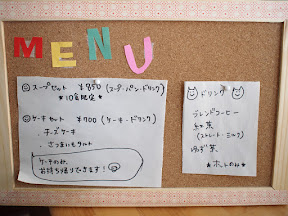 MENU
スープセット ¥850 (スープ・パン・ドリンク)
★10食限定★
ケーキセット ¥700 (ケーキ・ドリンク)
・チーズケーキ
・さつまいもタルト
ケーキのみ、
お持ち帰りできます！
ドリンク
ブレンドコーヒー
紅茶
(ストレート・ミルク)
ゆず茶
★ホットのみ★